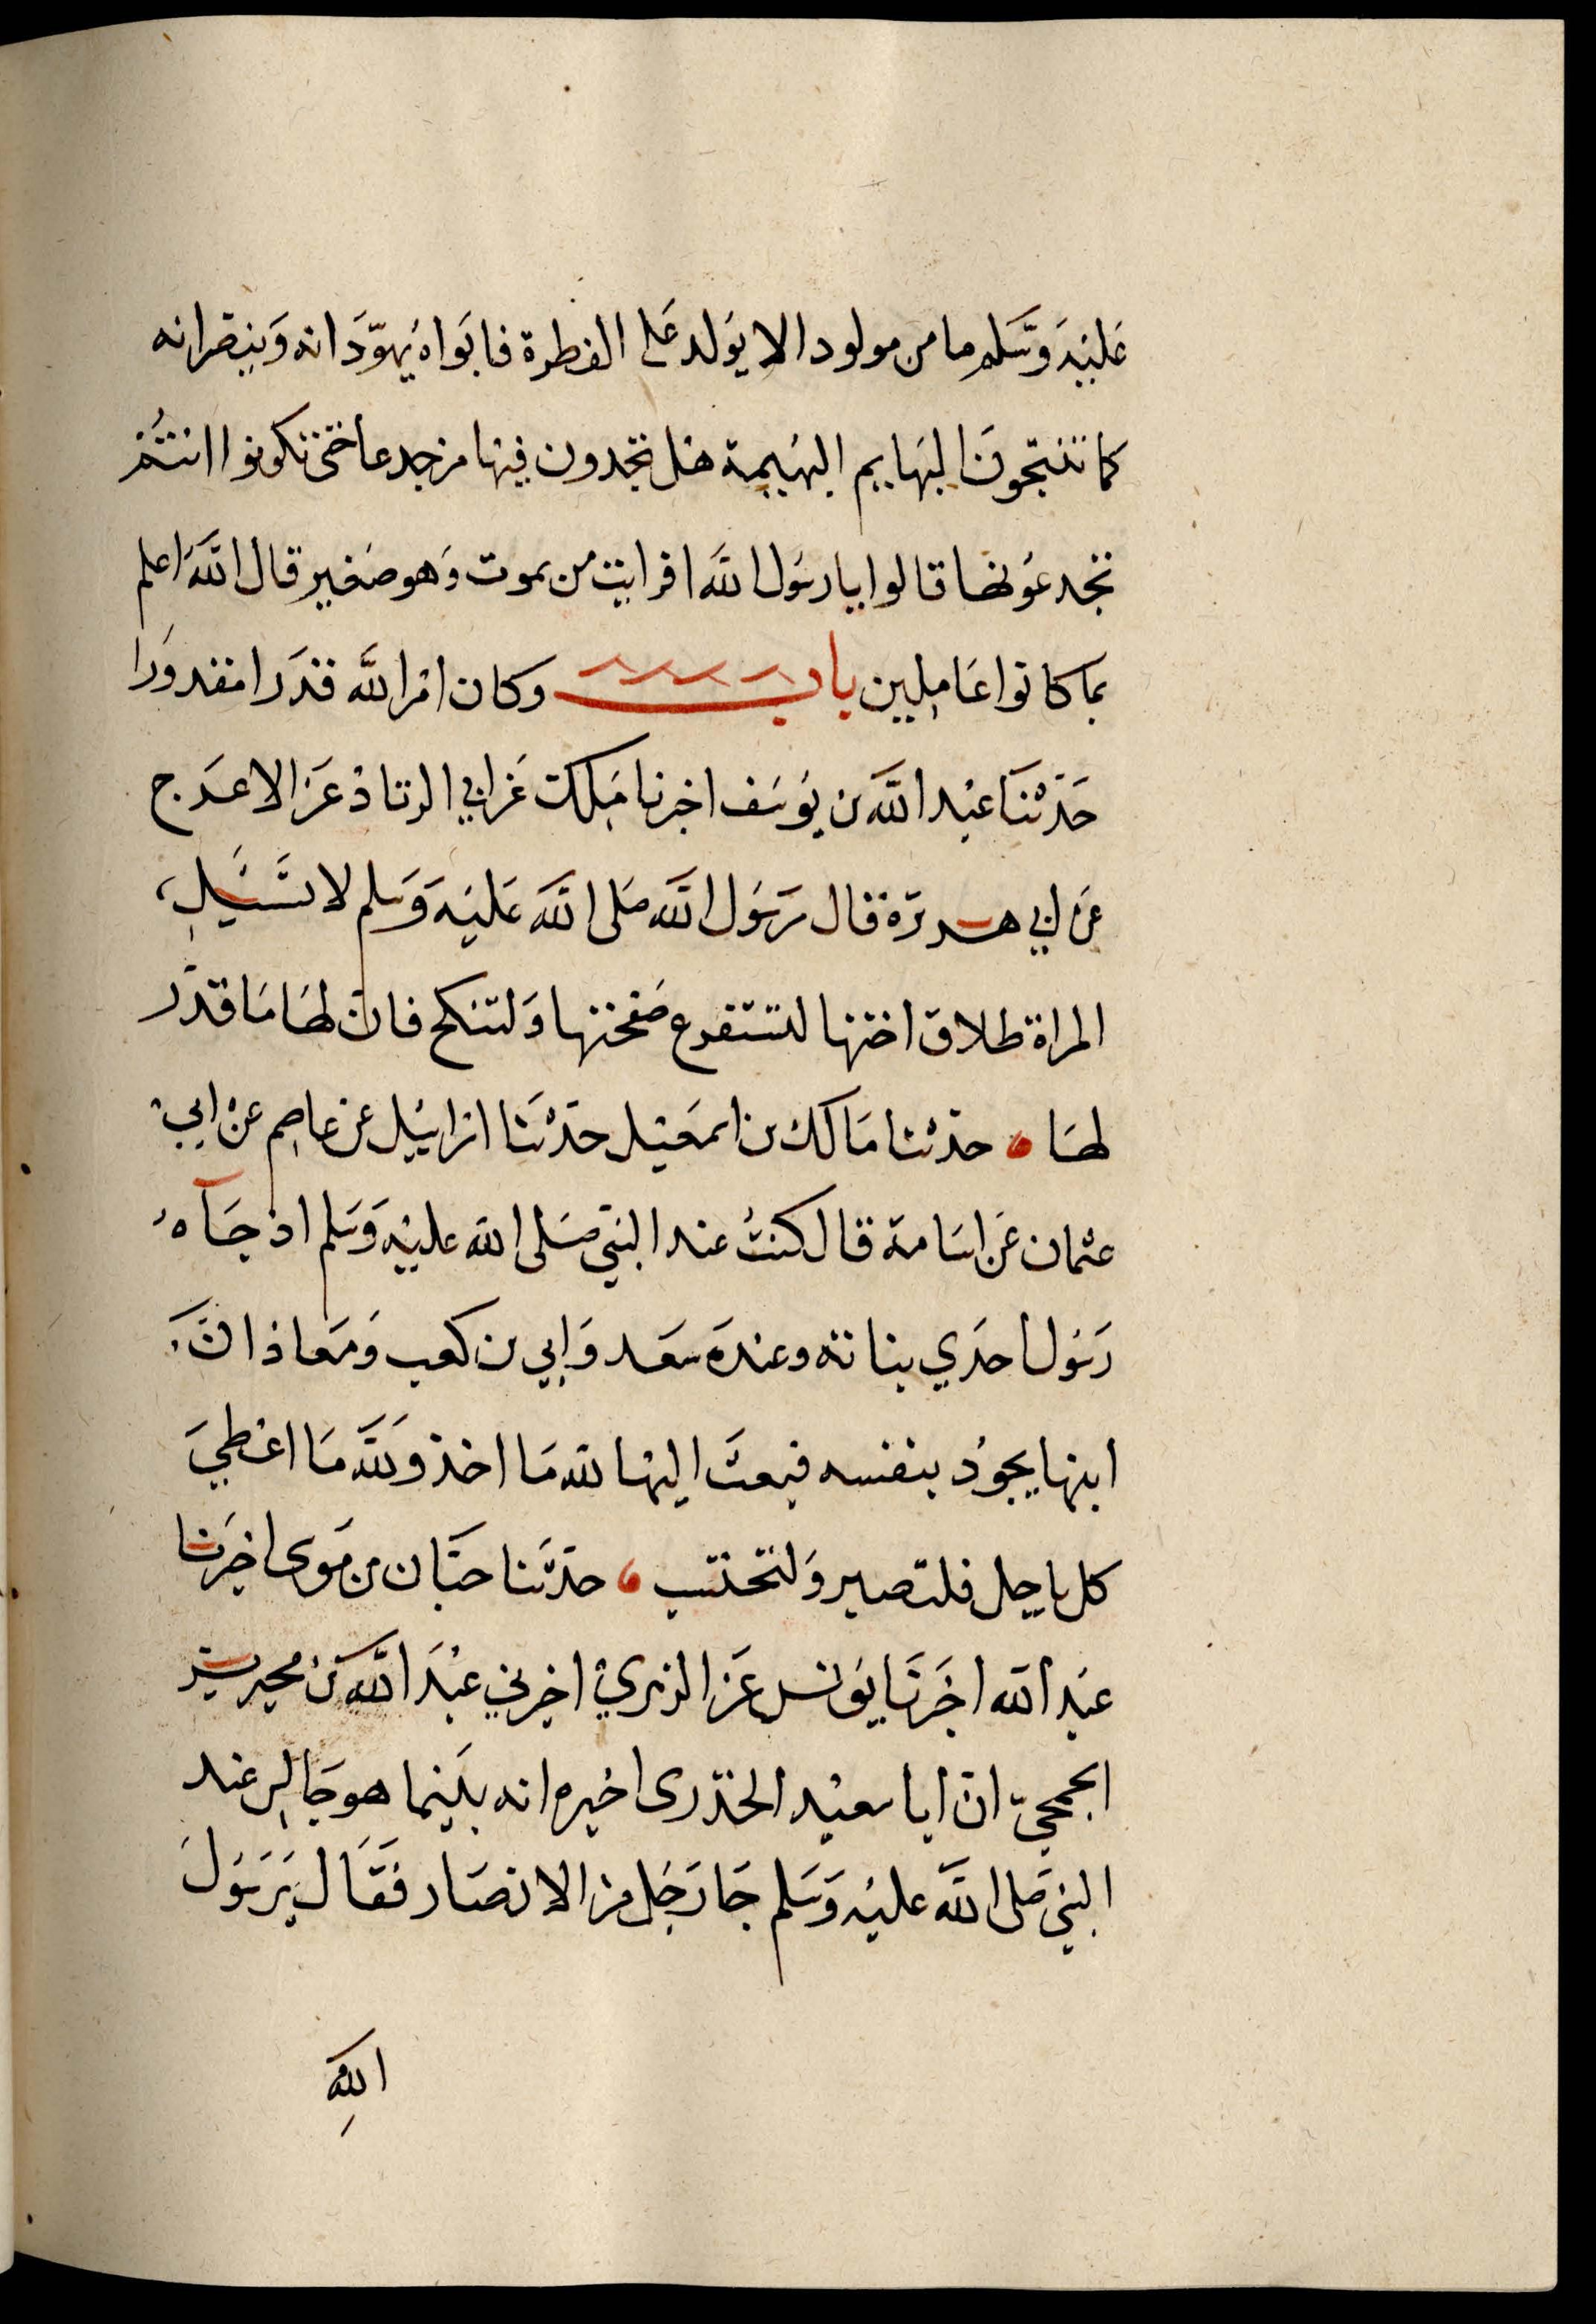 عَليْه وَسَّلم ما من مولود الا يُولد عَلى الفطرة فابَواه يُهوّدَانه وَينصّرانه
كما تنتجونَ البهايم البهيمة هل تجدون فيها من جدعا حتى تكونوا انتُم
تجدعُونها قالوا يا رسُول اللَّه افرايت من يموت وَهو صَغير قال اللَّه اعلم
بما كانوا عَاملِين باب وكان امْر اللَّه قدَرا مقدورَا
حَدّثنَا عبْد اللَّه بن يُوسُف اخبرنا مٰلك عَن ابي الزناد عَن الاعرَج
عَن ابي هريرَة قال رَسُول اللَّه صَلى اللَّه عَليْه وَسَلم لا تسَئَلِ
المراة طلاق اختها لتستفرع صَفحتها وَلتنكح فان لهَا مَا قدّر
لهَا حدّثنا مَالك بن اسمعيْل حدّثنَا اسرايئيل عن عاصِم عَنْ ابي
عثمان عَن اسَامة قال كنتُ عند النبيّ صَلى اللَّه عليْه وَسَلم اذ جَآه
رَسُول احدَي بناته وعندَه سَعد وَابي بن كعب وَمَعاذ انَّ
ابنها يجوُد بنفسه فبعثَ اليها للَّه مَا اخذ وَللَّه مَا اعْطيَ
كل باجل فلتصبر وَلتحتسب حدّثنا حبّان بن مَوسى اخبَرنا
عبْد اللَّه اخبَرنَا يوُنس عَن الزهريْ اخبرني عبْدَ اللَّه بنْ محيريز
الجمحيّ انّ ابا سعيْد الخدّرى اخبره انه بيَنما هو جَالس عند
النبيّ صَلى اللَّه عليْه وَسَلم جَا رَجُل من الانصَار فَقَال يَرَسُولَ
اللَّهِ